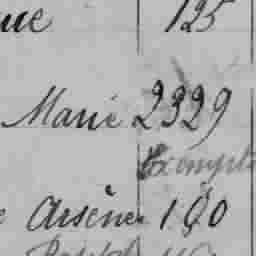 ue 125
Marie 2329
Exempte
e Arsène 100